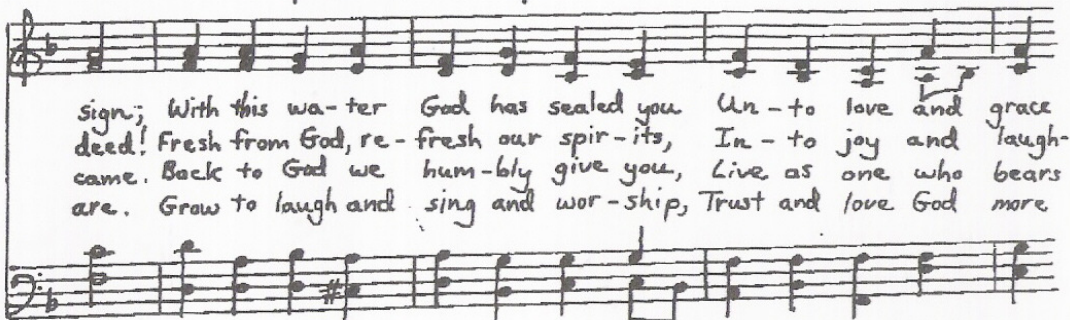 sign; With this wa-ter God has sealed you Un-to love and grace
deed! Fresh from God, re-fresh our spir-its, In-to joy and laugh-
came. Back to God we hum-bly give you, Live as one who bears
are. Grow to laugh and sing and wor-ship, Trust and love God more